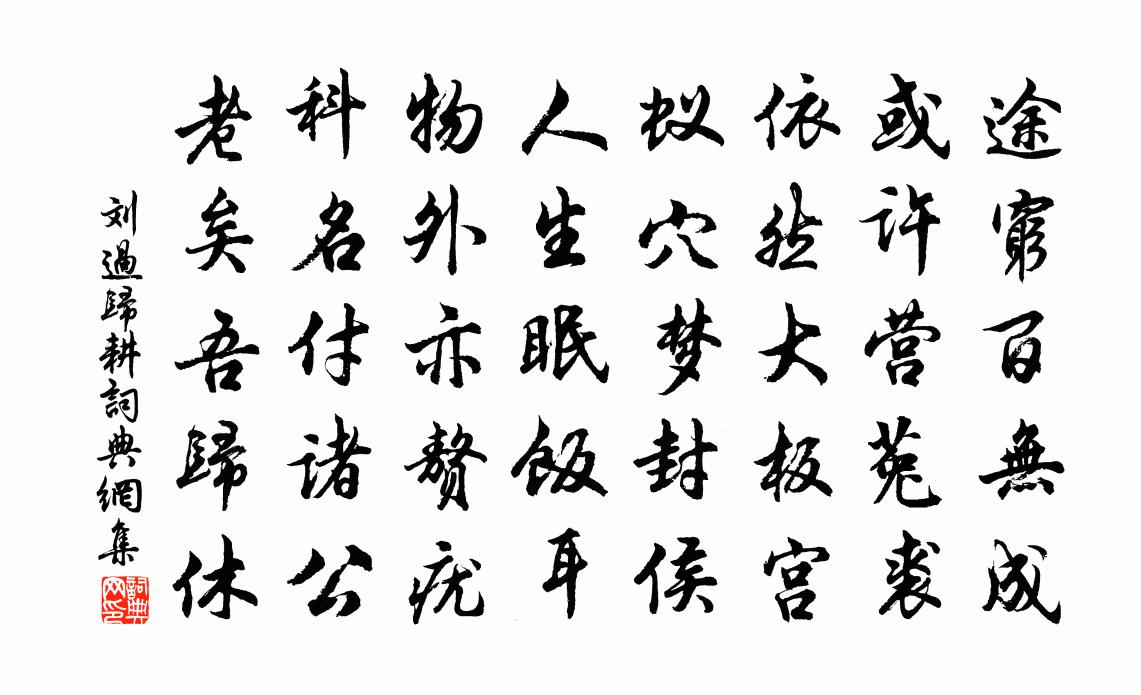 途窮百無成
或许营菟裘
依然大板宫
蚁穴梦封侯
人生眠飯耳
物外亦贅疣
科名付诸公
老矣吾歸休
刘過歸耕詞典網集
詞典网印